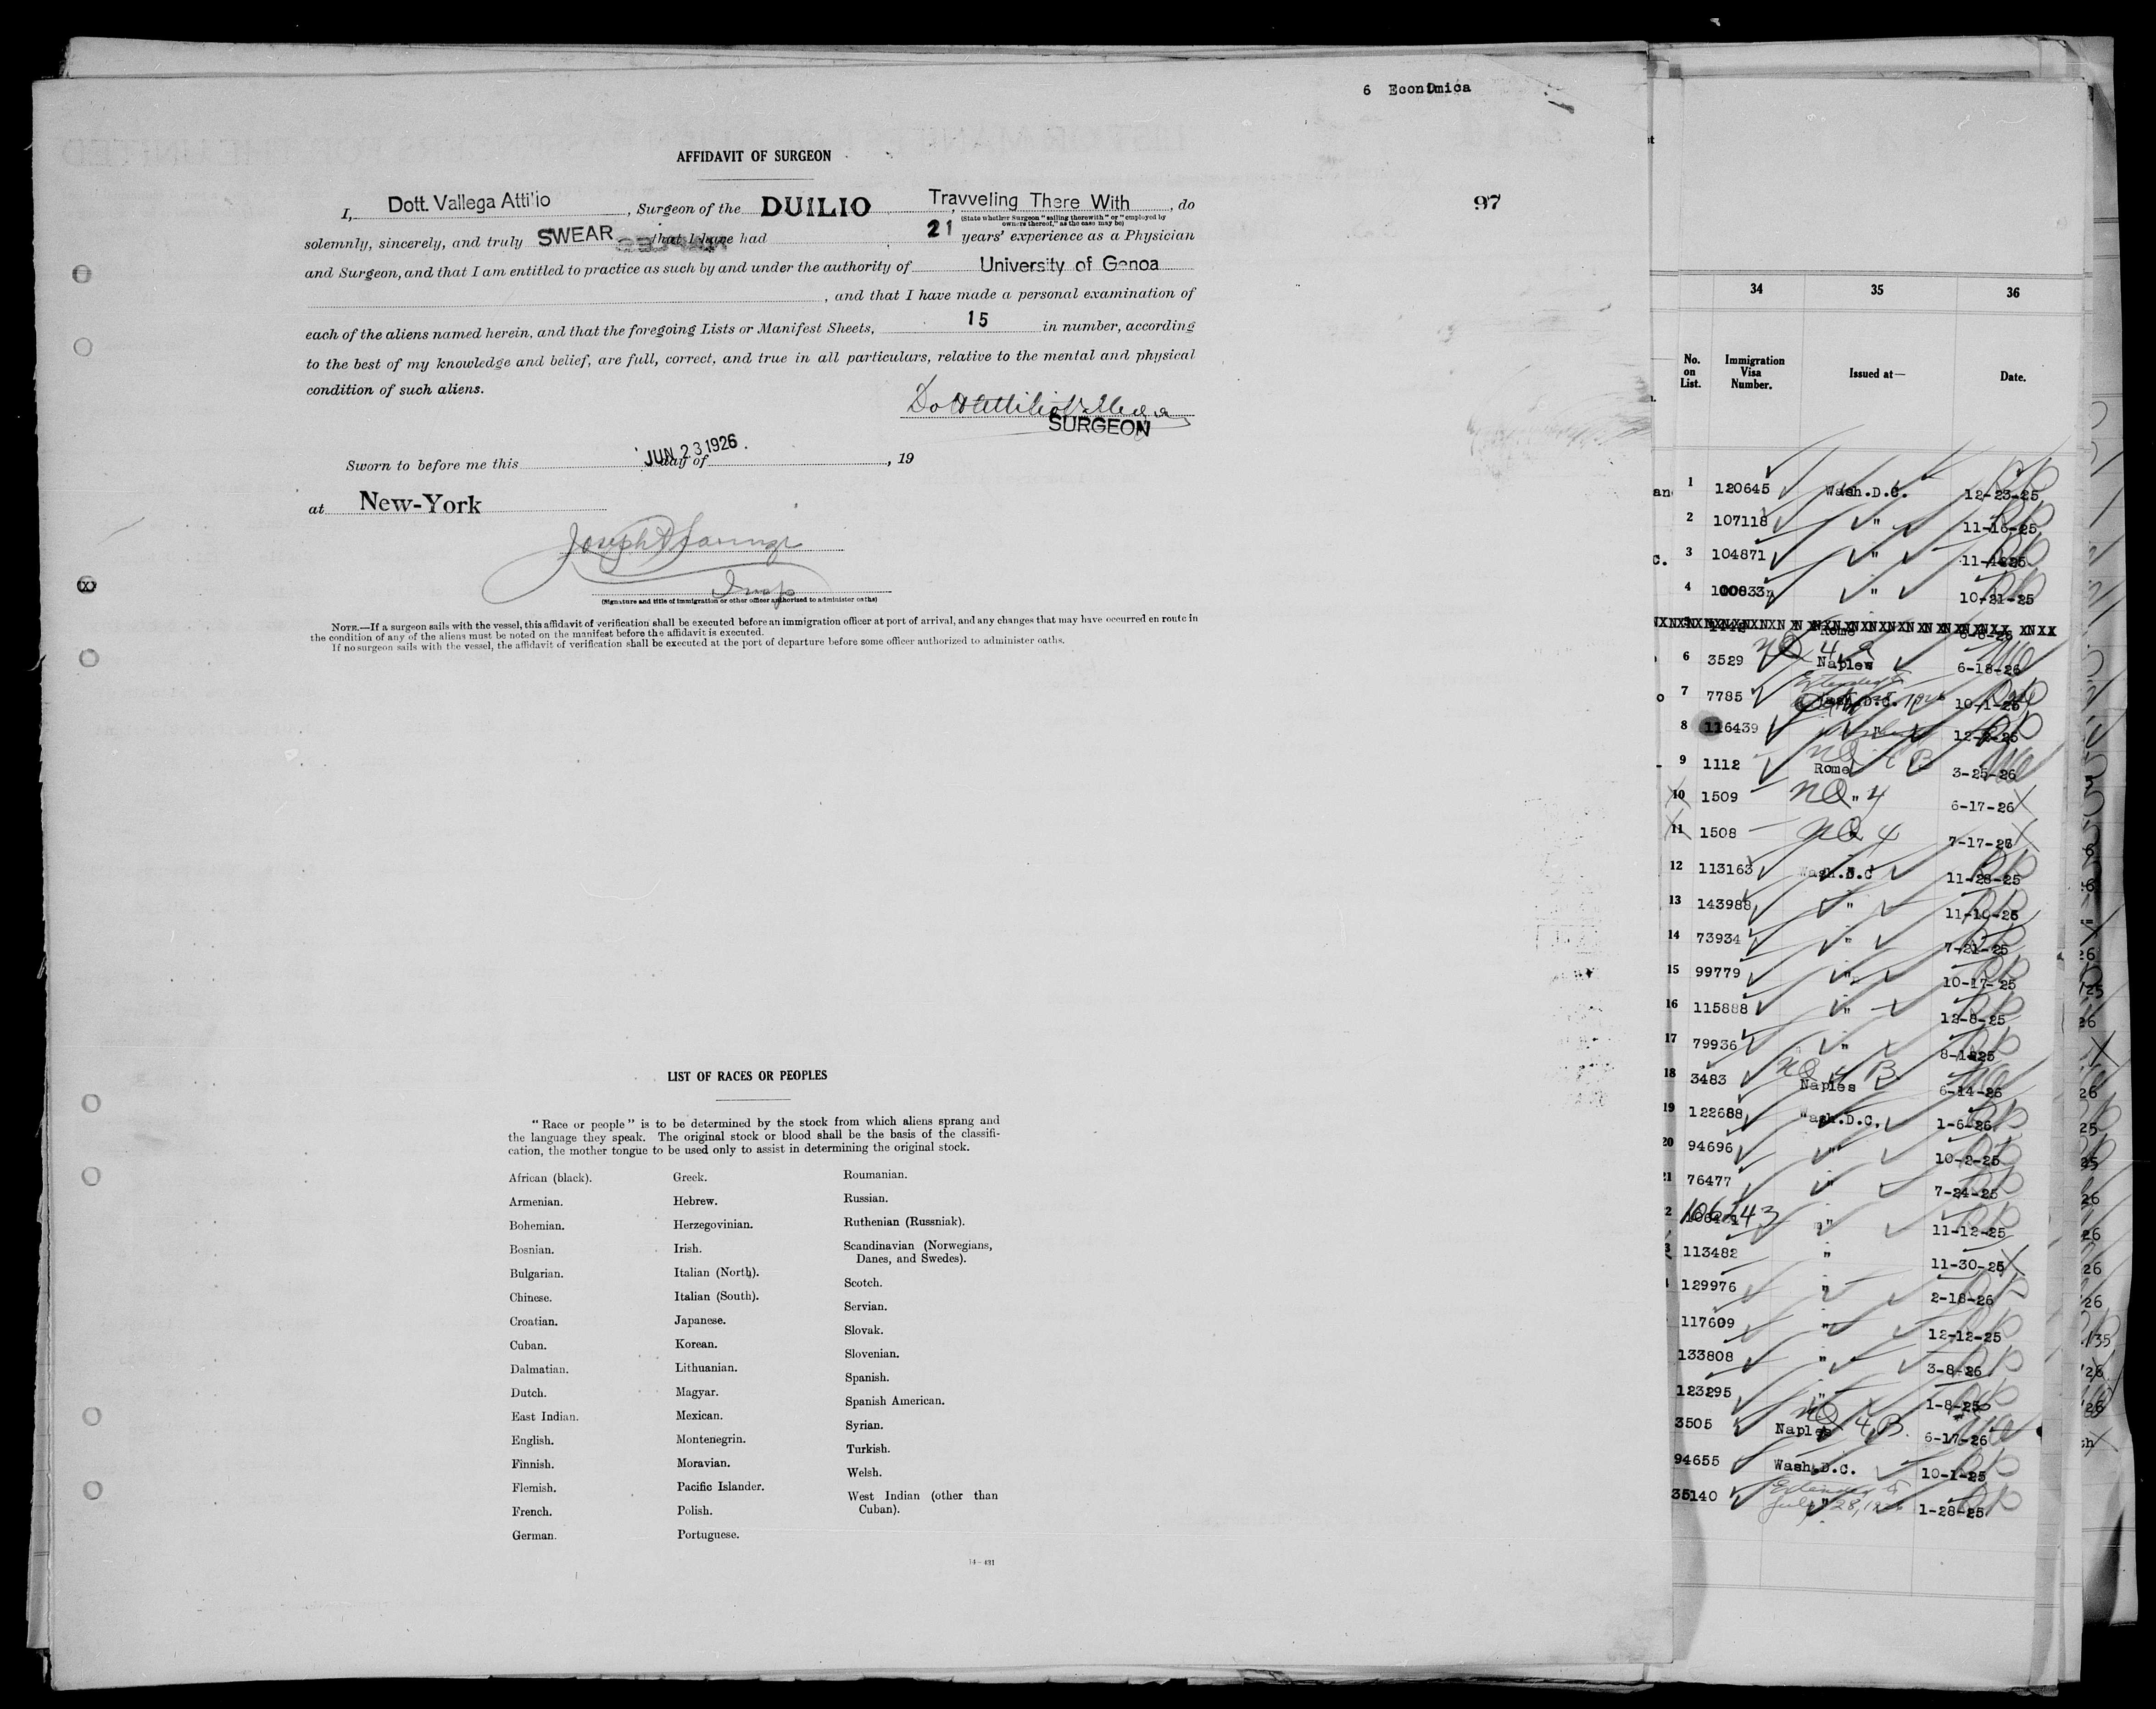 6 Economica
97
AFFIDAVIT OF SURGEON
I, Dott. Vallega Attilio, Surgeon of the DUILIO Travveling There With, do
(State whether Surgeon "sailing therewith" or "employed by
owners thereof," as the case may be)
solemnly, sincerely, and truly SWEAR that I have had 21 years' experience as a Physician
and Surgeon, and that I am entitled to practice as such by and under the authority of University of Genoa
, and that I have made a personal examination of
each of the aliens named herein, and that the foregoing Lists or Manifest Sheets, 15 in number, according
to the best of my knowledge and belief, are full, correct, and true in all particulars, relative to the mental and physical
condition of such aliens.
Dott Attilio Vallega
SURGEON
Sworn to before me this JUN 23 1926. day of , 19
at New-York
Joseph
Insp
(Signature and title of immigration or other officer authorized to administer oaths)
NOTE.—If a surgeon sails with the vessel, this affidavit of verification shall be executed before an immigration officer at port of arrival, and any changes that may have occurred en route in
the condition of any of the aliens must be noted on the manifest before the affidavit is executed.
If no surgeon sails with the vessel, the affidavit of verification shall be executed at the port of departure before some officer authorized to administer oaths.
LIST OF RACES OR PEOPLES
"Race or people" is to be determined by the stock from which aliens sprang and
the language they speak. The original stock or blood shall be the basis of the classifi-
cation, the mother tongue to be used only to assist in determining the original stock.
African (black).
Armenian.
Bohemian.
Bosnian.
Bulgarian.
Chinese.
Croatian.
Cuban.
Dalmatian.
Dutch.
East Indian.
English.
Finnish.
Flemish.
French.
German.
Greek.
Hebrew.
Herzegovinian.
Irish.
Italian (North).
Italian (South).
Japanese.
Korean.
Lithuanian.
Magyar.
Mexican.
Montenegrin.
Moravian.
Pacific Islander.
Polish.
Portuguese.
Roumanian.
Russian.
Ruthenian (Russniak).
Scandinavian (Norwegians,
Danes, and Swedes).
Scotch.
Servian.
Slovak.
Slovenian.
Spanish.
Spanish American.
Syrian.
Turkish.
Welsh.
West Indian (other than
Cuban).
14—431
34 35 36
No.
on
List.
Immigration
Visa
Number.
Issued at—
Date.
1 120645 Wash.D.C. 12-23-25
2 107118 " 11-16-25
3 104871 " 11-
4 100833 " 10-21-25
Rome
6 3529 NQ 4 Naples 6-18-26
7 7785 Wash.D.C. 10-1-25
8 116439 " 12-2-25
9 1112 NQ 4 B Rome 3-25-26
10 1509 NQ " 4 6-17-26
11 1508 NQ 4 7-17-26
12 113163 Wash.D.C 11-28-25
13 143988 " 11-10-25
14 73934 " 7-21-25
15 99779 " 10-17-25
16 115888 " 12-8-25
17 79936 " 8-1-25
18 3483 NQ 4 B Naples 6-14-26
19 122688 Wash.D.C. 1-6-26
20 94696 " 10-2-25
21 76477 " 7-24-25
2 106243 " 11-12-25
3 113482 " 11-30-25
129976 " 2-18-26
117609 " 12-12-25
133808 " 3-8-26
123295 " 1-8-25
3505 NQ 4 B. Naples 6-17-26
94655 Wash.D.C. 10-1-25
35140 " 1-28-25
Extended to
July 28, 1926